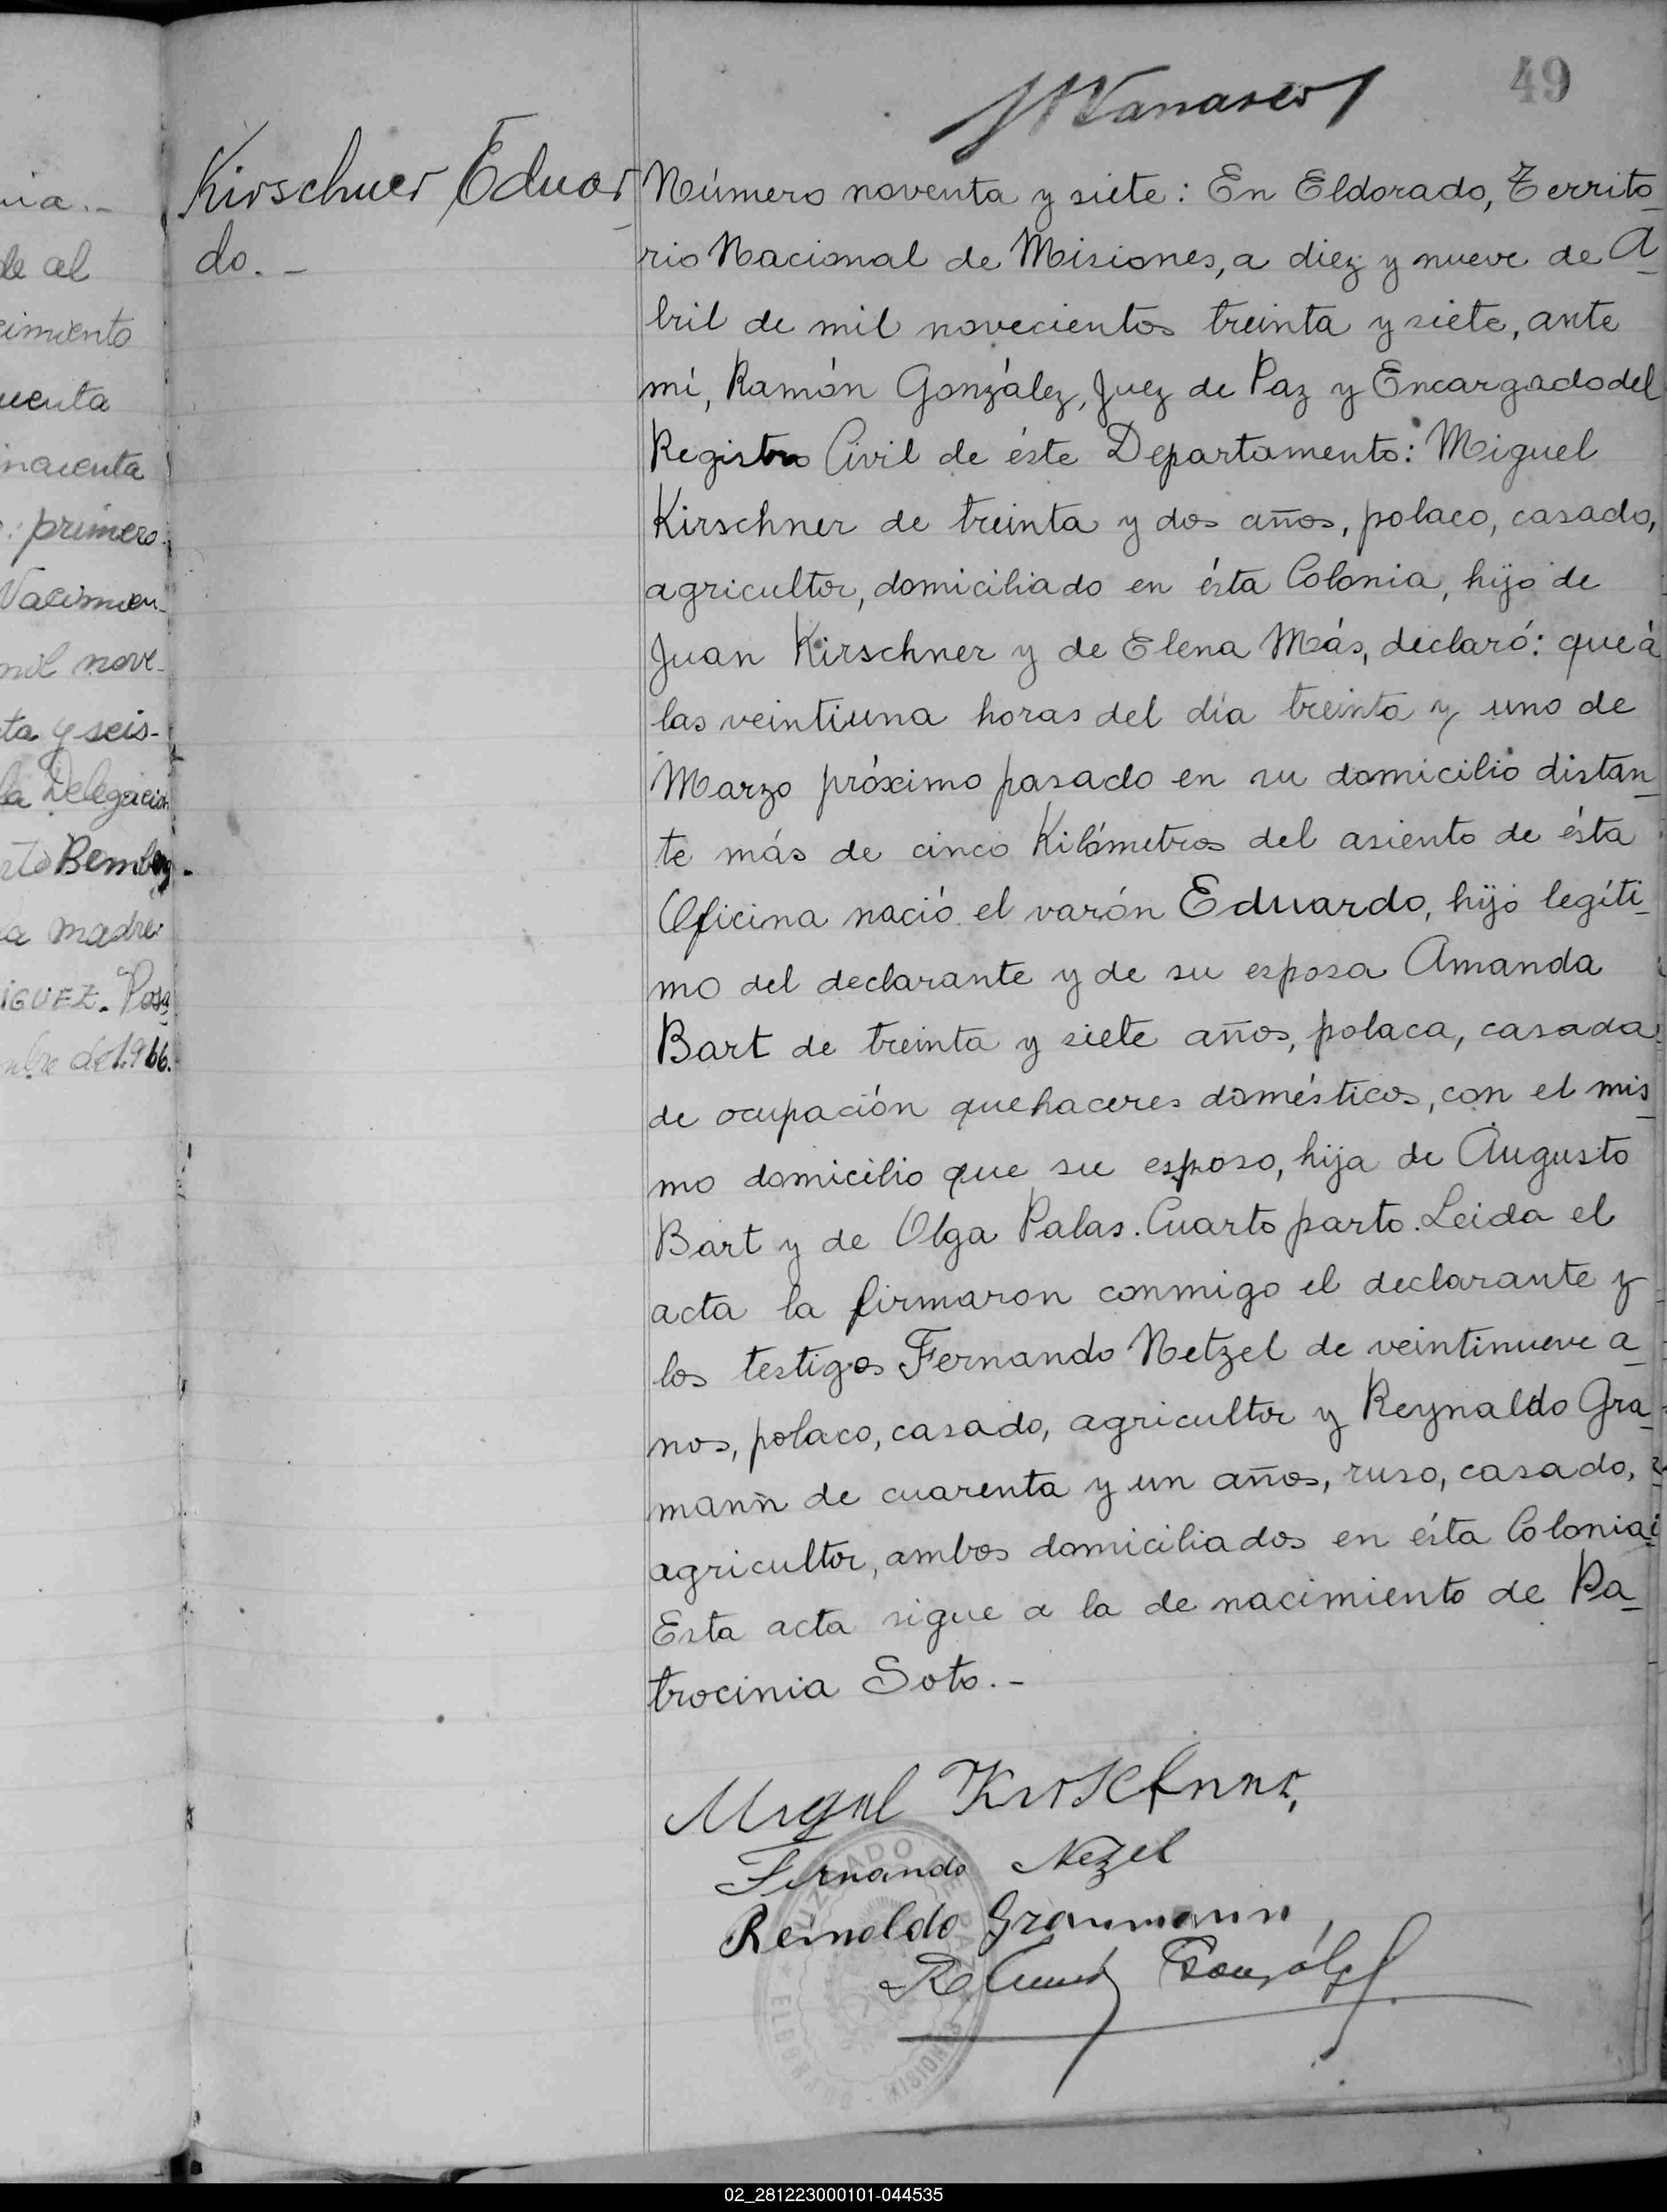 49
Kirschner Eduar
do.-
Número noventa y siete: En Eldorado, Territo
rio Nacional de Misiones, a diez y nueve de A
bril de mil novecientos treinta y siete, ante
mí, Ramón González, Juez de Paz y Encargado del
Registro Civil de éste Departamento: Miguel
Kirschner de treinta y dos años, polaco, casado,
agricultor, domiciliado en ésta Colonia, hijo de
Juan Kirschner y de Elena Más, declaró: que á
las veintiuna horas del día treinta y uno de
Marzo próximo pasado en su domicilio distan
te más de cinco Kilómetros del asiento de ésta
Oficina nació el varón Eduardo, hijo legíti
mo del declarante y de su esposa Amanda
Bart de treinta y siete años, polaca, casada
de ocupación quehaceres domésticos, con el mis
mo domicilio que su esposo, hija de Augusto
Bart y de Olga Palas. Cuarto parto. Leida el
acta la firmaron conmigo el declarante y
los testigos Fernando Netzel de veintinueve a
nos, polaco, casado, agricultor y Reynaldo Gra
mann de cuarenta y un años, ruso, casado,
agricultor, ambos domiciliados en ésta Colonia
Esta acta sigue a la de nacimiento de Pa
trocinia Soto.-
Fernando Nezel
Reinoldo Graumann
González
JUZGADO DE PAZ
ELDORADO - MISIONES
de al
cimiento
primero
mil nove-
ta y seis-
la Delegacion
Bemberg.
a madre:
IGUEZ. Posa
de 1.966.
02_281223000101-044535